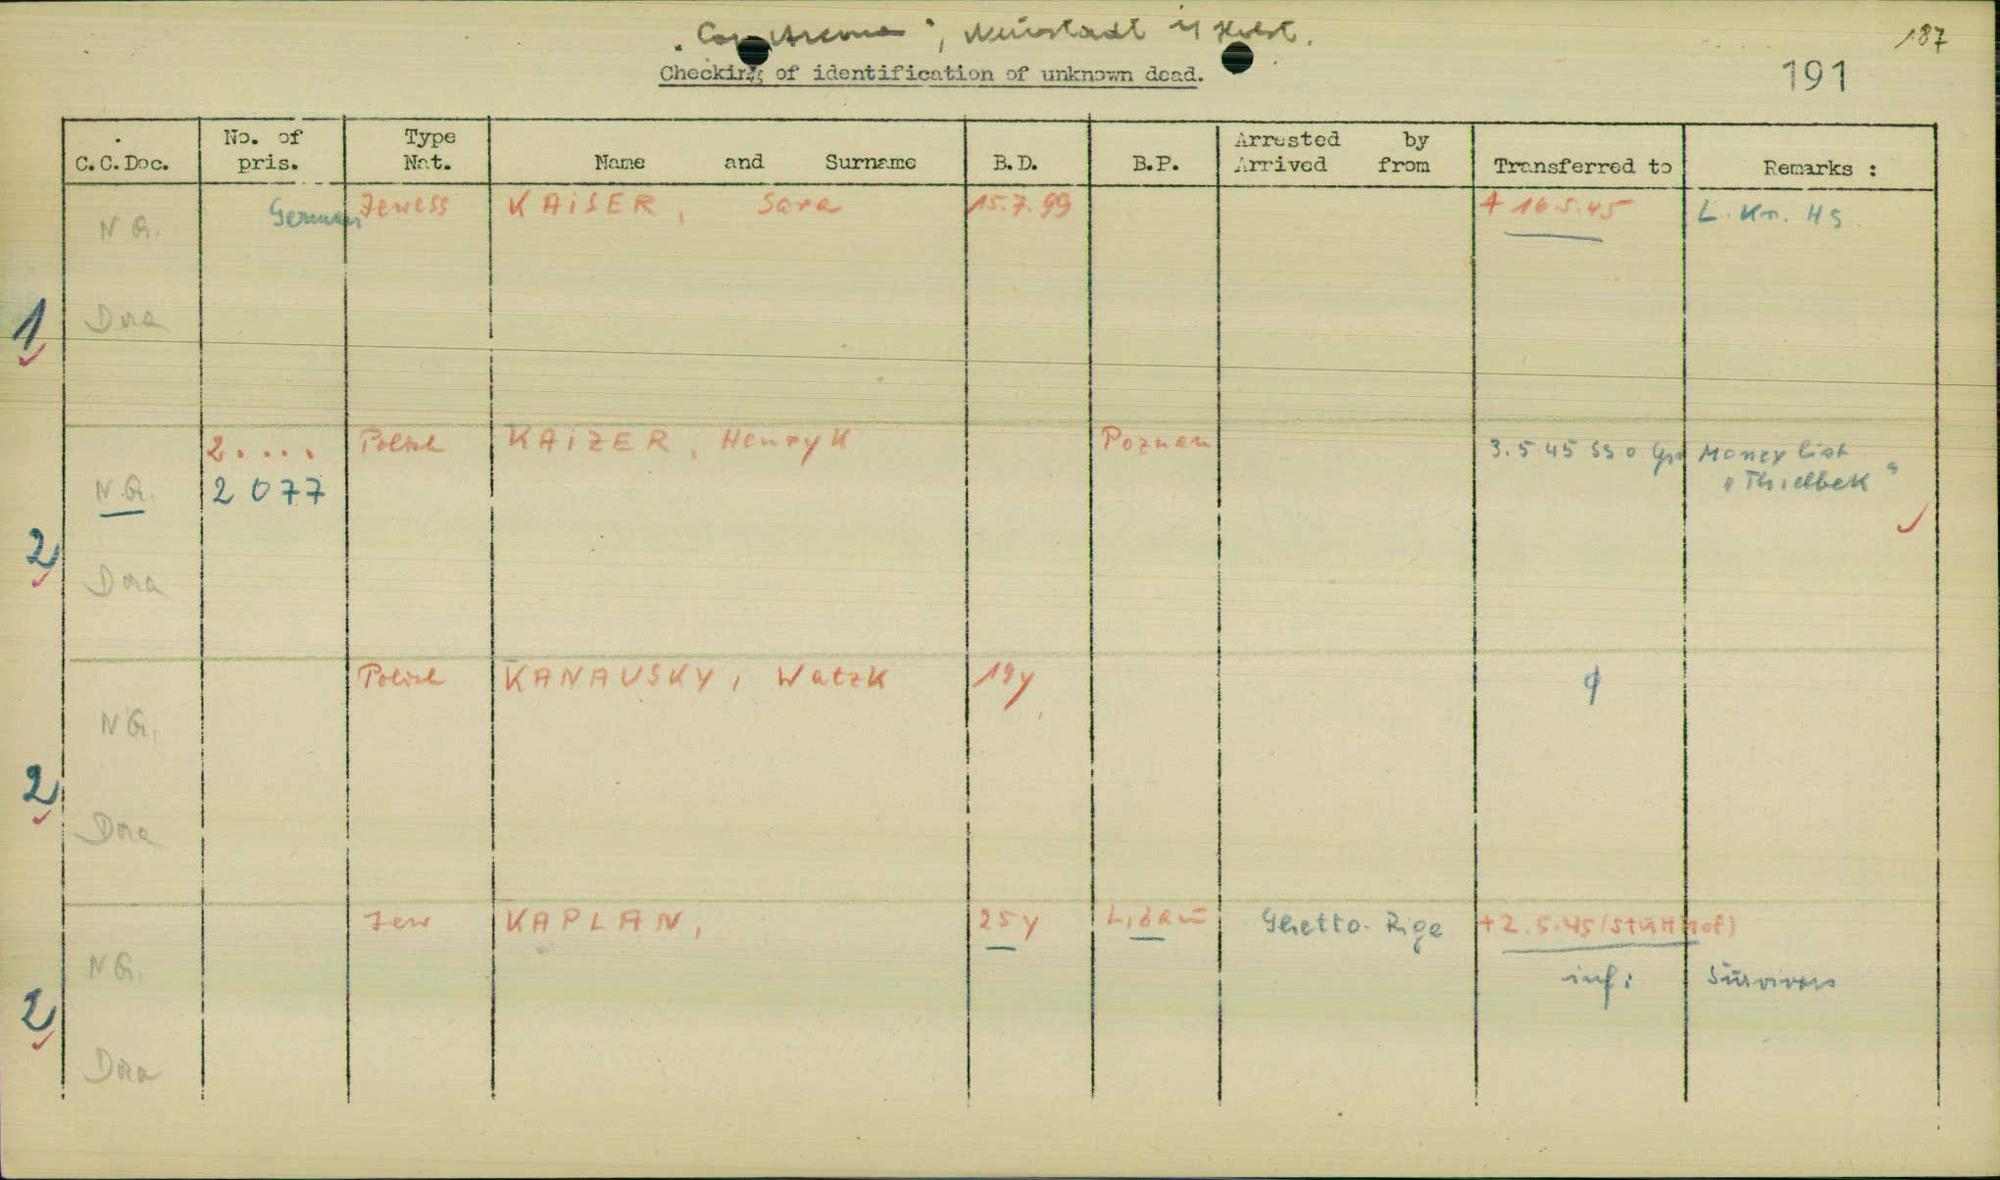 "Cap Arcona", Neustadt i/ Holst.
187
Checking of identification of unknown dead.
191
C.C.Doc. No. of pris. Type Nat. Name and Surname B.D. B.P. Arrested by Arrived from Transferred to Remarks :
N G. German Jewess KAISER, Sara 15.7.99 + 16.5.45 L. Kr. Hs
1 Dora
2.... Polish KAIZER, Henryk Poznan 3.5 45 Money list
N.G. 2077 "Thielbek"
2 Dora
Polish KANAUSKY, Watzk 19y
NG.
2 Dora
Jew KAPLAN, 25y Libau Ghetto-Riga + 2.5.45 (Stutthof)
NG. inf: Survivors
2 Dora